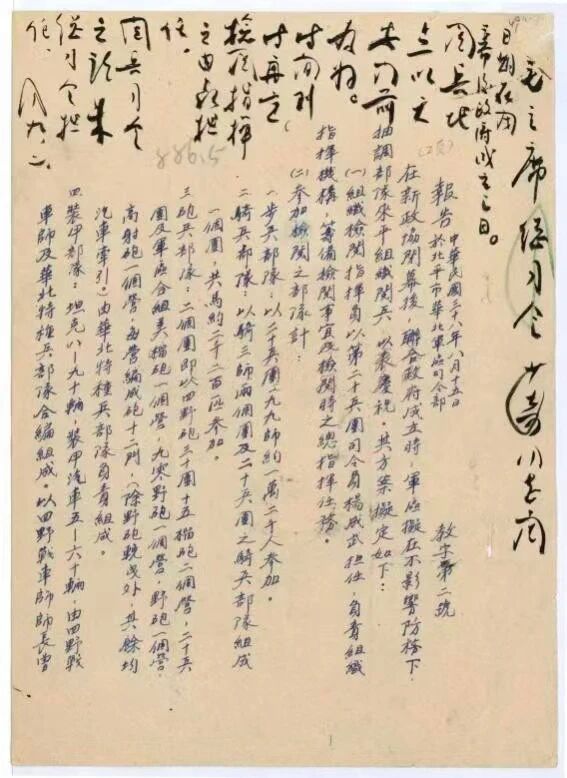 毛主席 總司令 少奇
日期在
席及政府成立之日。
閱兵地
点以天
安门前
为好。
时间到
时再定
检阅指挥
之由聂担
任。
閱兵司令
之請朱
總司令担
任。
九、二、
88615
報告
中華民國三十八年八月十五日
於北平市華北軍區司令部
教字第二號
在新政協閉幕後,聯合政府成立時,軍區擬在不影響防務下,
抽調部隊來平組織閱兵以表慶祝,其方案擬定如下:
(一)組織檢閱指揮 以第二十兵團司令員楊成武担任,負責組織
指揮機構,籌備檢閱事宜及檢閱時之總指揮任務。
(二)參加檢閱之部隊計:
一步兵部隊:以二十兵團一九九師約一萬二千人參加。
二騎兵部隊:以騎三師兩個團及二十兵團之騎兵部隊組成
一個團,共馬約二千二百匹參加。
三砲兵部隊:二個團即以四野砲三十團十五榴砲二個營,二十兵
團及軍區合組美榴砲一個營,九零野砲一個營,野砲一個營,
高射砲一個營,每營編成砲十二門,(除野砲輓曳外,其餘均
汽車牽引)由華北特種兵部隊負責組成。
四裝甲部隊:坦克八—九十輛,裝甲汽車五—六十輛,由四野戰
車師及華北特種兵部隊合編組成。以四野戰車師師長曾